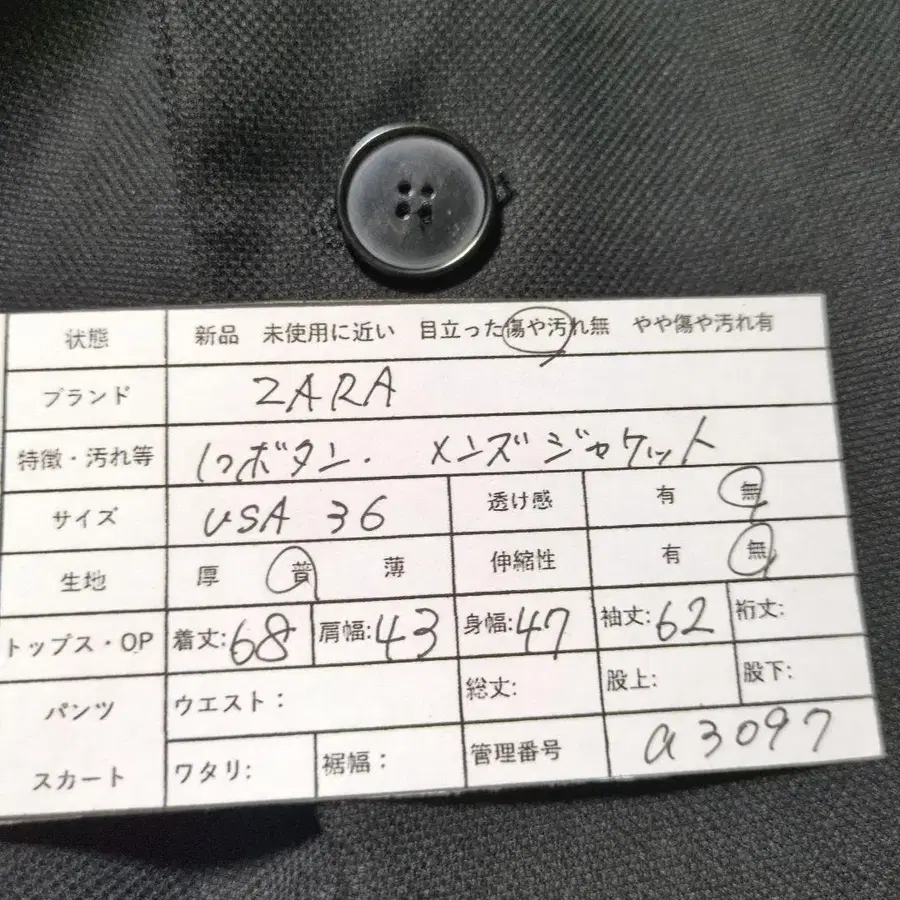 状態 新品 未使用に近い 目立った傷や汚れ無 やや傷や汚れ有
ブランド ZARA
特徴・汚れ等 1つボタン. メンズジャケット
サイズ USA 36 透け感 有 無
生地 厚 普 薄 伸縮性 有 無
トップス・OP 着丈:68 肩幅:43 身幅:47 袖丈:62 裄丈:
パンツ ウエスト: 総丈: 股上: 股下:
スカート ワタリ: 裾幅: 管理番号 a3097